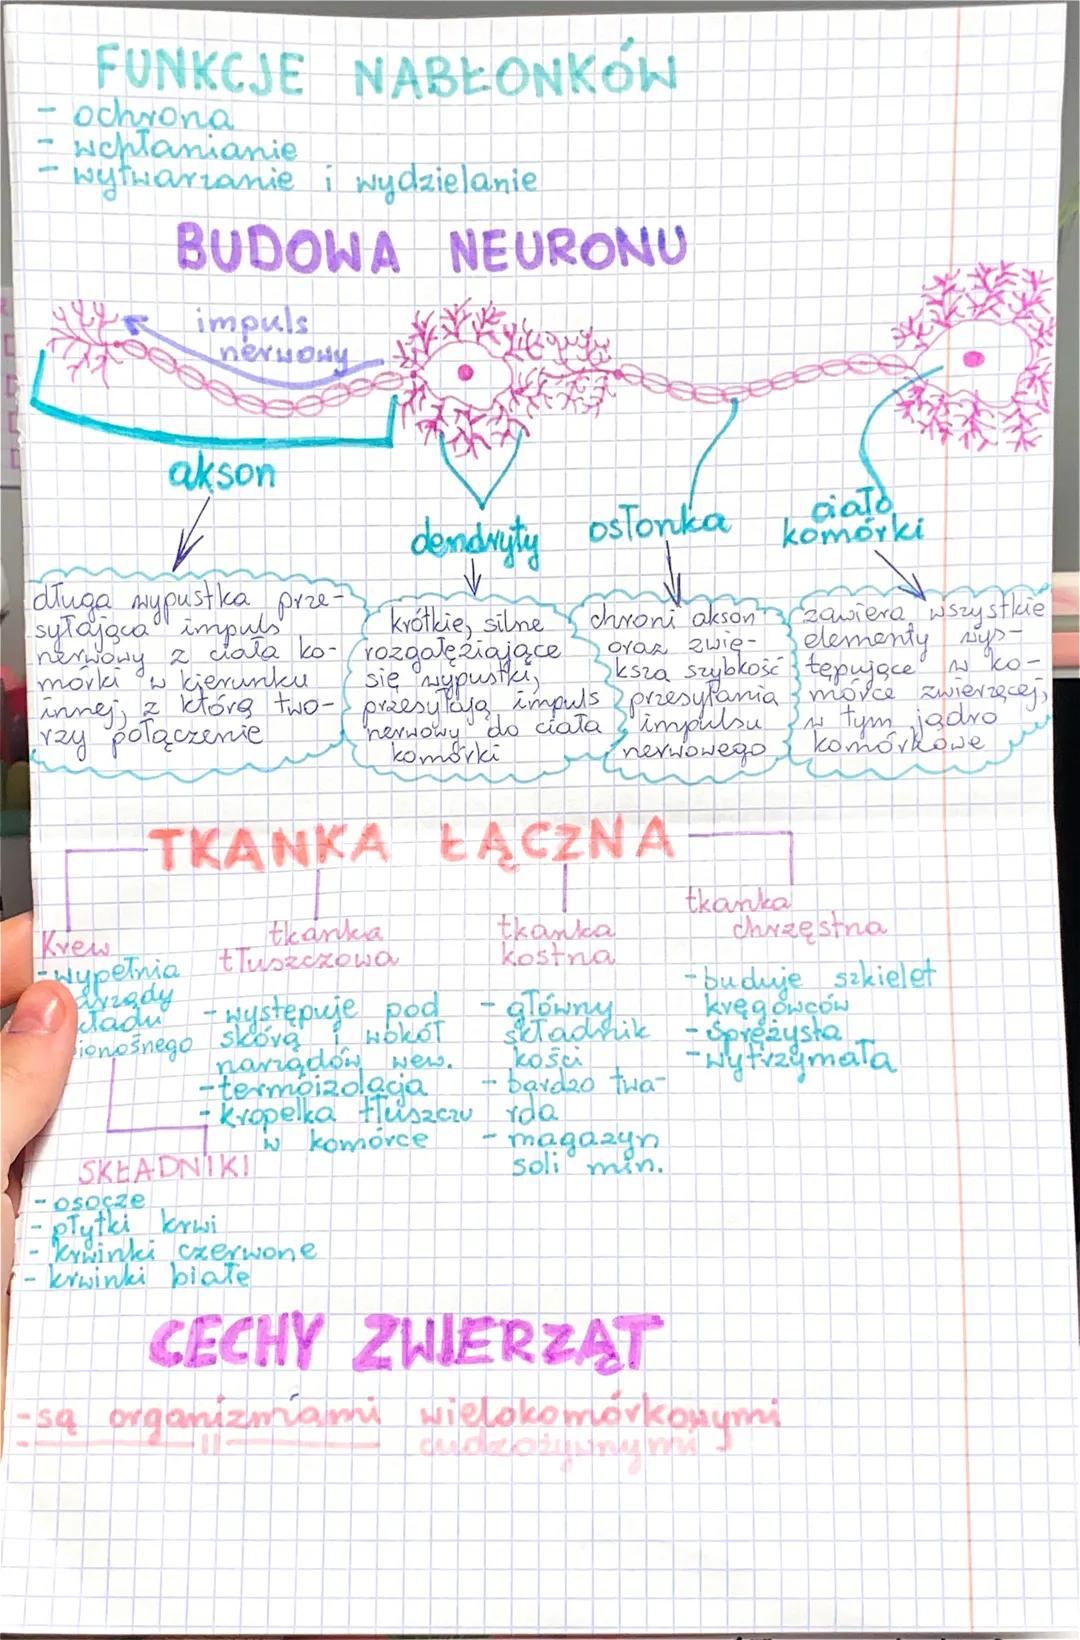 FUNKCJE NABŁONKÓW
- ochrona
- wchłanianie
- wytwarzanie i wydzielanie
BUDOWA NEURONU
impuls
nerwowy
akson
dendryty
osłonka
ciało
komórki
długa wypustka prze-
syłająca impuls
nerwowy z ciała ko-
mórki w kierunku
innej, z którą two-
rzy połączenie
krótkie, silne
rozgałęziające
się wypustki,
przesyłają impuls
nerwowy do ciała
komórki
chroni akson
oraz zwię-
ksza szybkość
przesyłania
impulsu
nerwowego
zawiera wszystkie
elementy wys-
tępujące w ko-
mórce zwierzęcej,
w tym jądro
komórkowe
TKANKA ŁĄCZNA
Krew
- wypełnia
TKANKA
tkanka
tłuszczowa
- występuje pod
skórą i wokół
narządów wew.
- termoizolacja
- kropelka tłuszczu
w komórce
tkanka
kostna
- główny
składnik
kości
- bardzo twa-
rda
- magazyn
soli min.
tkanka
chrzęstna
- buduje szkielet
kręgowców
- sprężysta
- wytrzymała
SKŁADNIKI
- osocze
- płytki krwi
- krwinki czerwone
- krwinki białe
CECHY ZWIERZĄT
- są organizmami wielokomórkowymi
- —— 11 —— cudzożywnymi